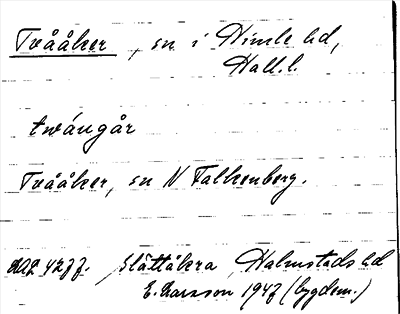 Tvååker, sn i Himle hd,
Hall.l.
twángår
Tvååker, sn N Falkenberg.
Slättåkra, Halmstads hd
E. Larsson 1947 (bygdem.)